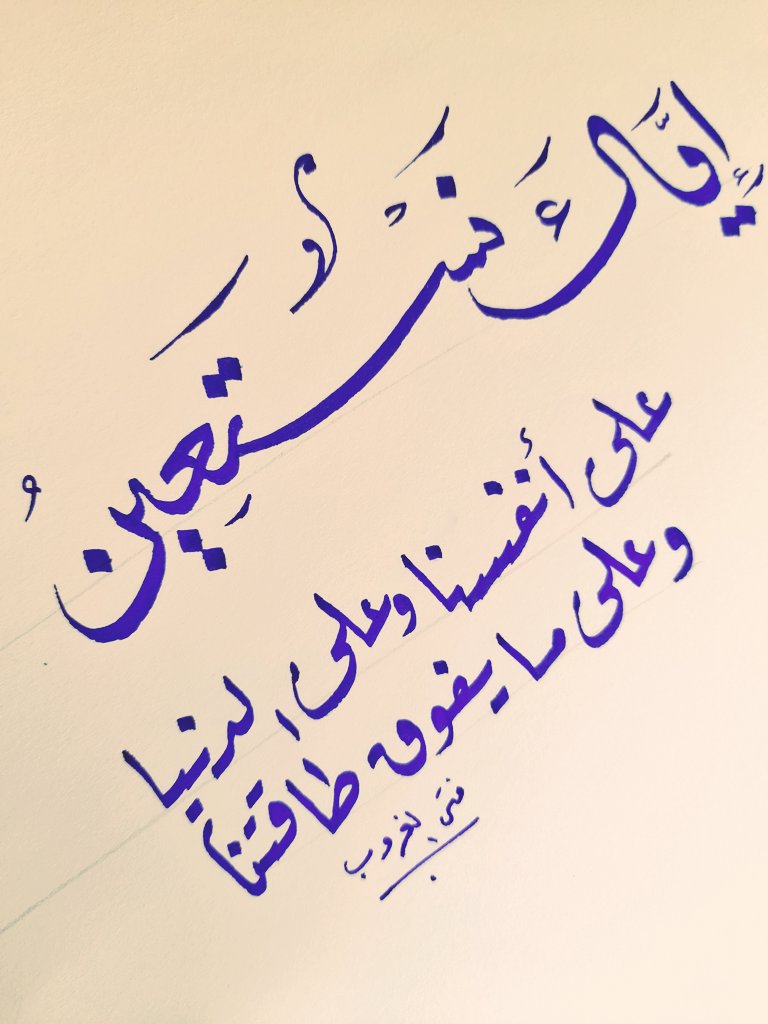 إِيَّاكَ نَسْتَعِينُ
على أنفسنا وعلى الدنيا
وعلى ما يفوق طاقتنا
فتى الغروب